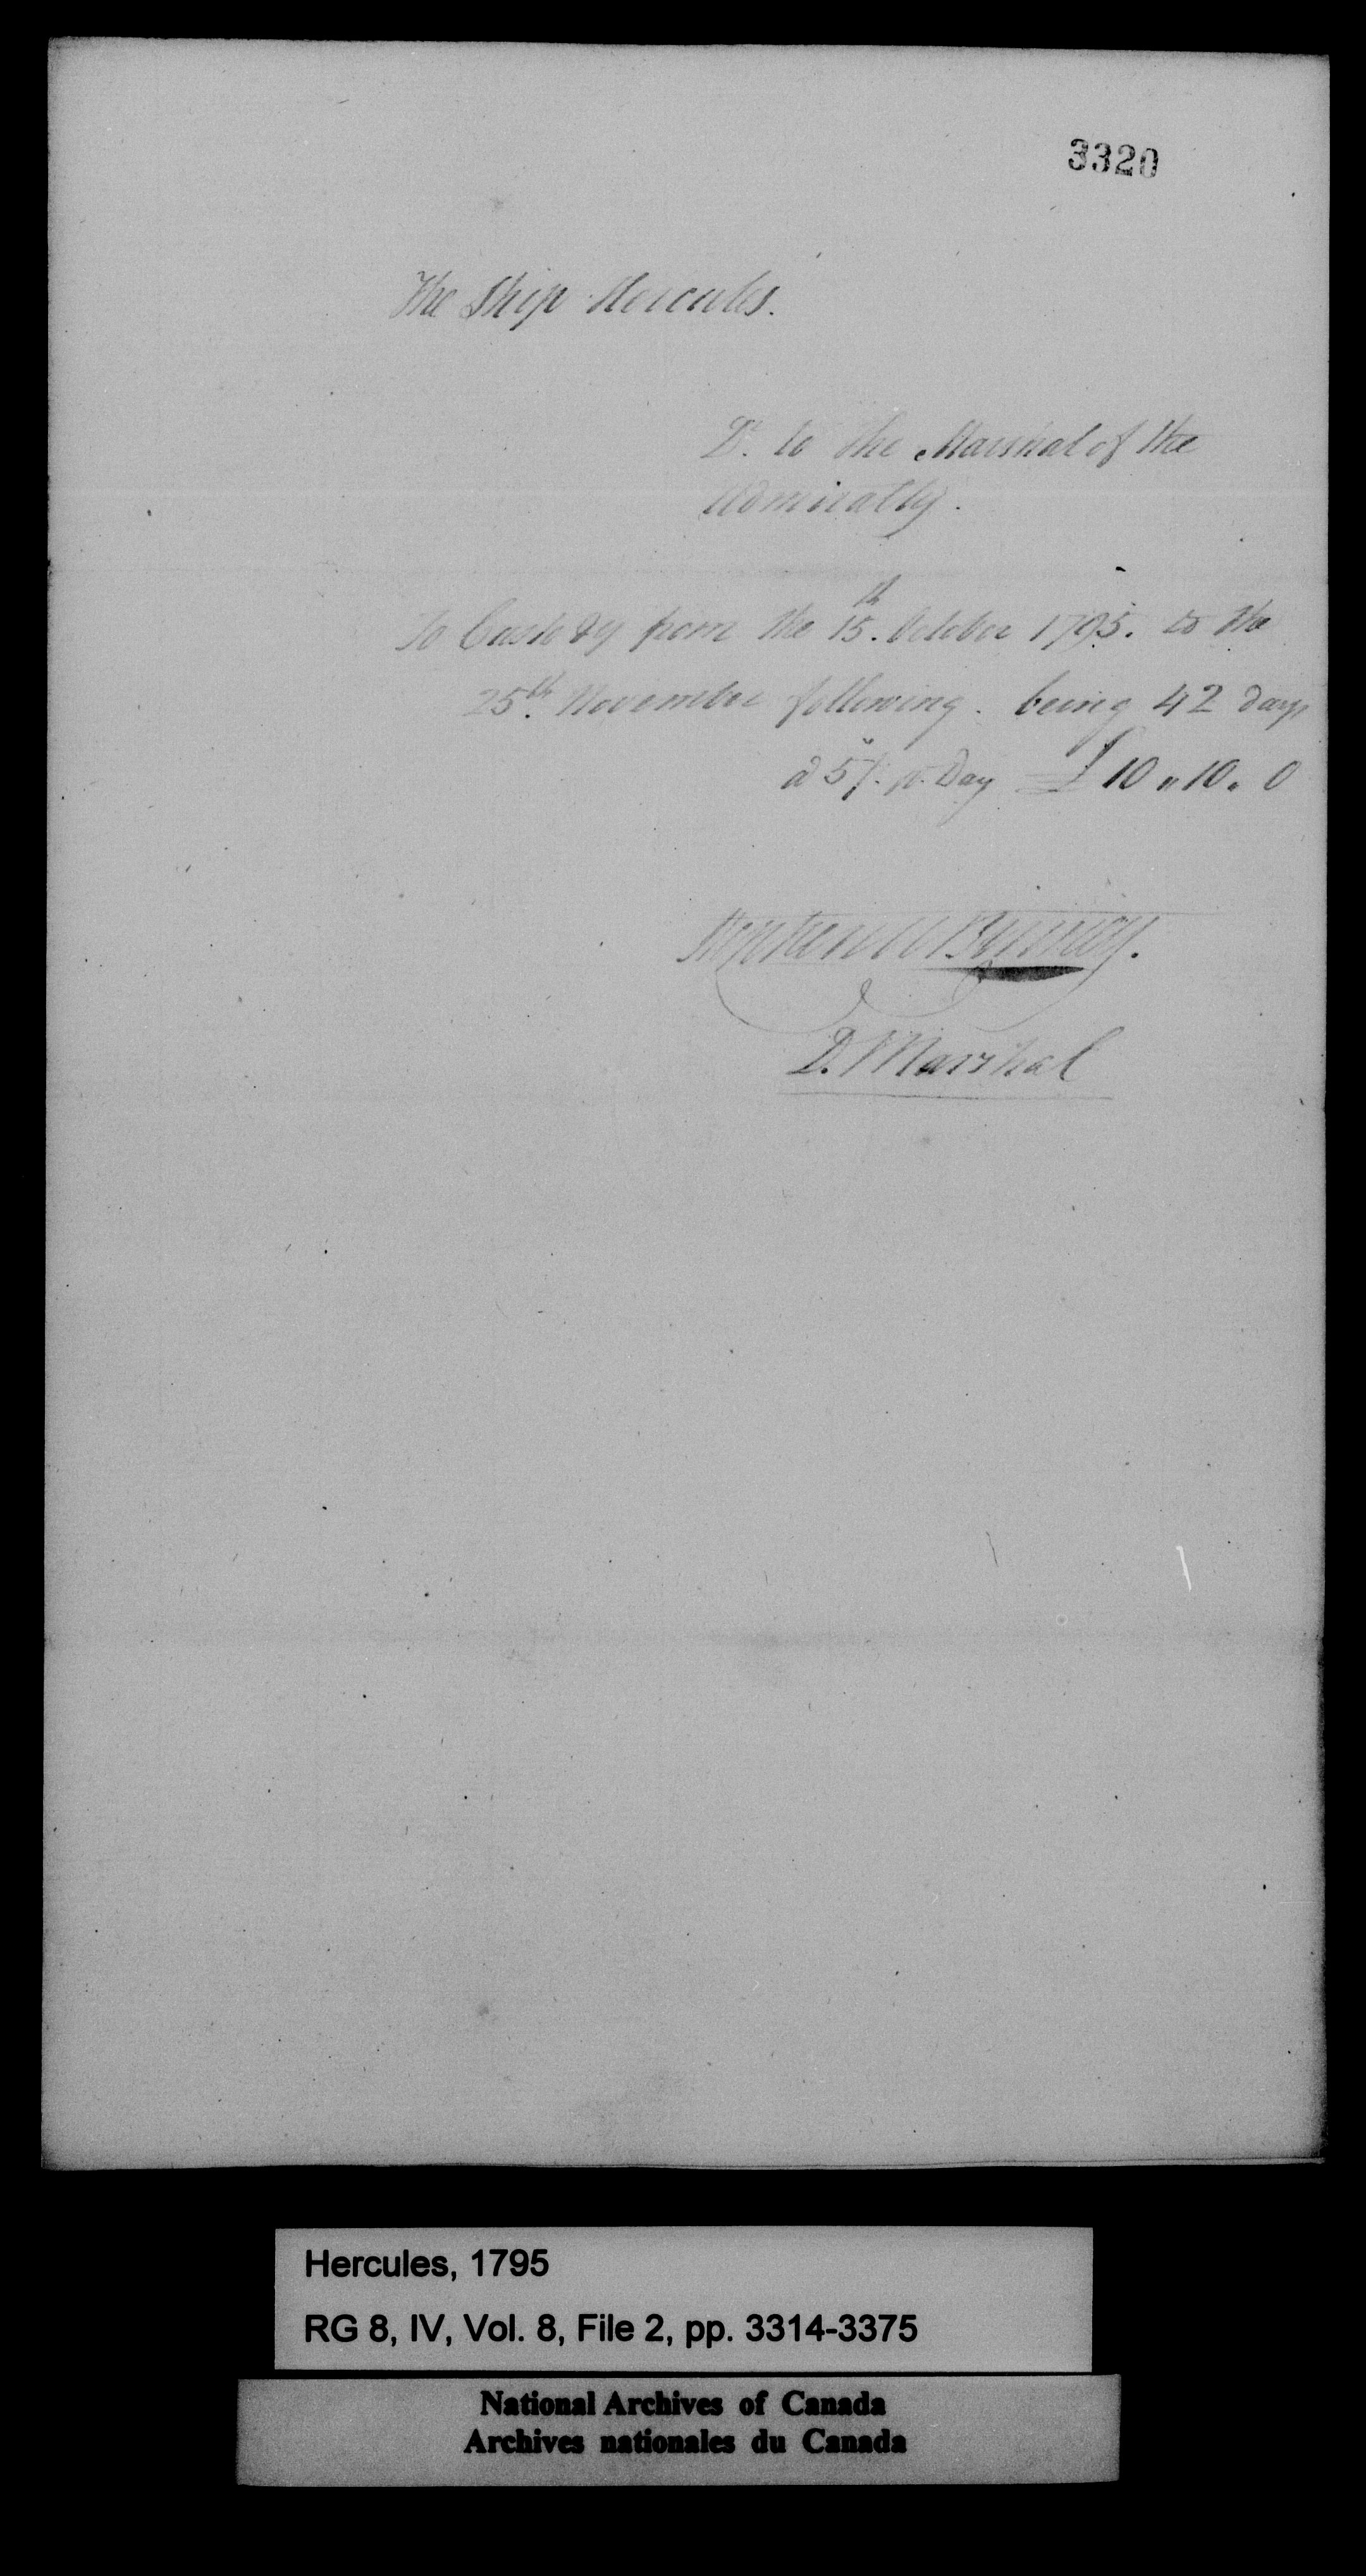 3320
The Ship Hercules.
Dr. to the Marshal of the
Admiralty.
To Custody from the 15th. October 1795. to the
25th. November following. being 42 days
a 5/. p. Day £10,,10,,0
Binney.
D. Marshal
Hercules, 1795
RG 8, IV, Vol. 8, File 2, pp. 3314-3375
National Archives of Canada
Archives nationales du Canada